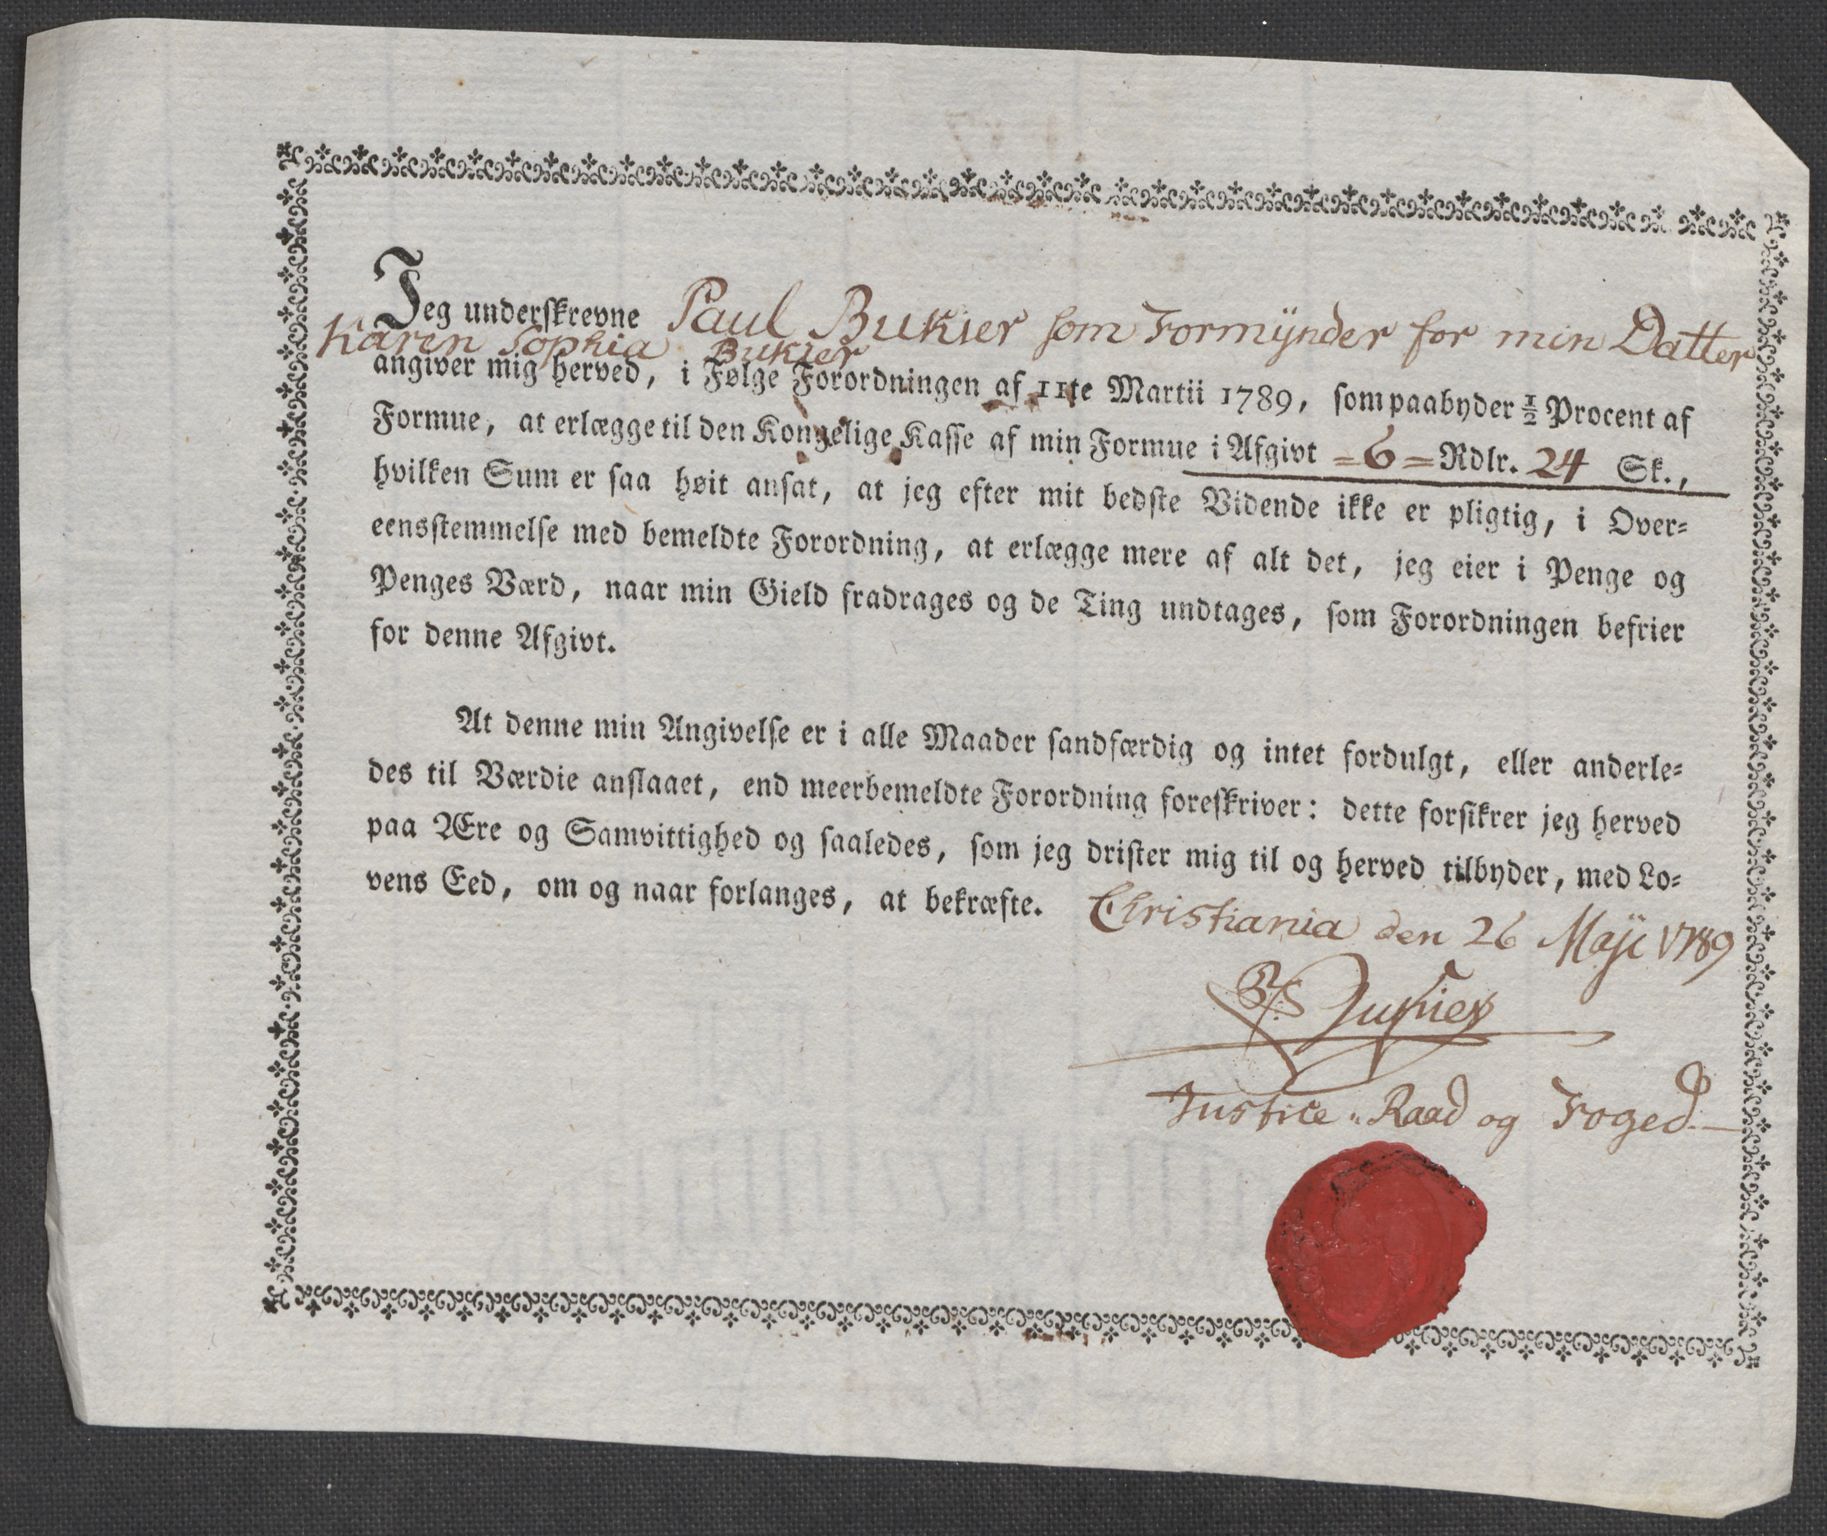 Jeg underskrevne Paul Bukier som Formÿnder for min Datter
Karen Sophia Bukier
angiver mig herved, i Følge Forordningen af 11te Martii 1789, som paabyder ½ Procent af
Formue, at erlægge til den Kongelige Kasse af min Formue i Afgivt =6= Rdlr. 24 Sk.,
hvilken Sum er saa høit ansat, at jeg efter mit bedste Vidende ikke er pligtig, i Over=
eensstemmelse med bemeldte Forordning, at erlægge mere af alt det, jeg eier i Penge og
Penges Værd, naar min Gield fradrages og de Ting undtages, som Forordningen befrier
for denne Afgivt.
At denne min Angivelse er i alle Maader sandfærdig og intet fordulgt, eller anderle=
des til Værdie anslaaet, end meerbemeldte Forordning foreskriver: dette forsikrer jeg herved
paa Ære og Samvittighed og saaledes, som jeg drister mig til og herved tilbyder, med Lo=
vens Eed, om og naar forlanges, at bekræfte. Christiania den 26 Maji 1789
Bukier
Justice Raad og Foged